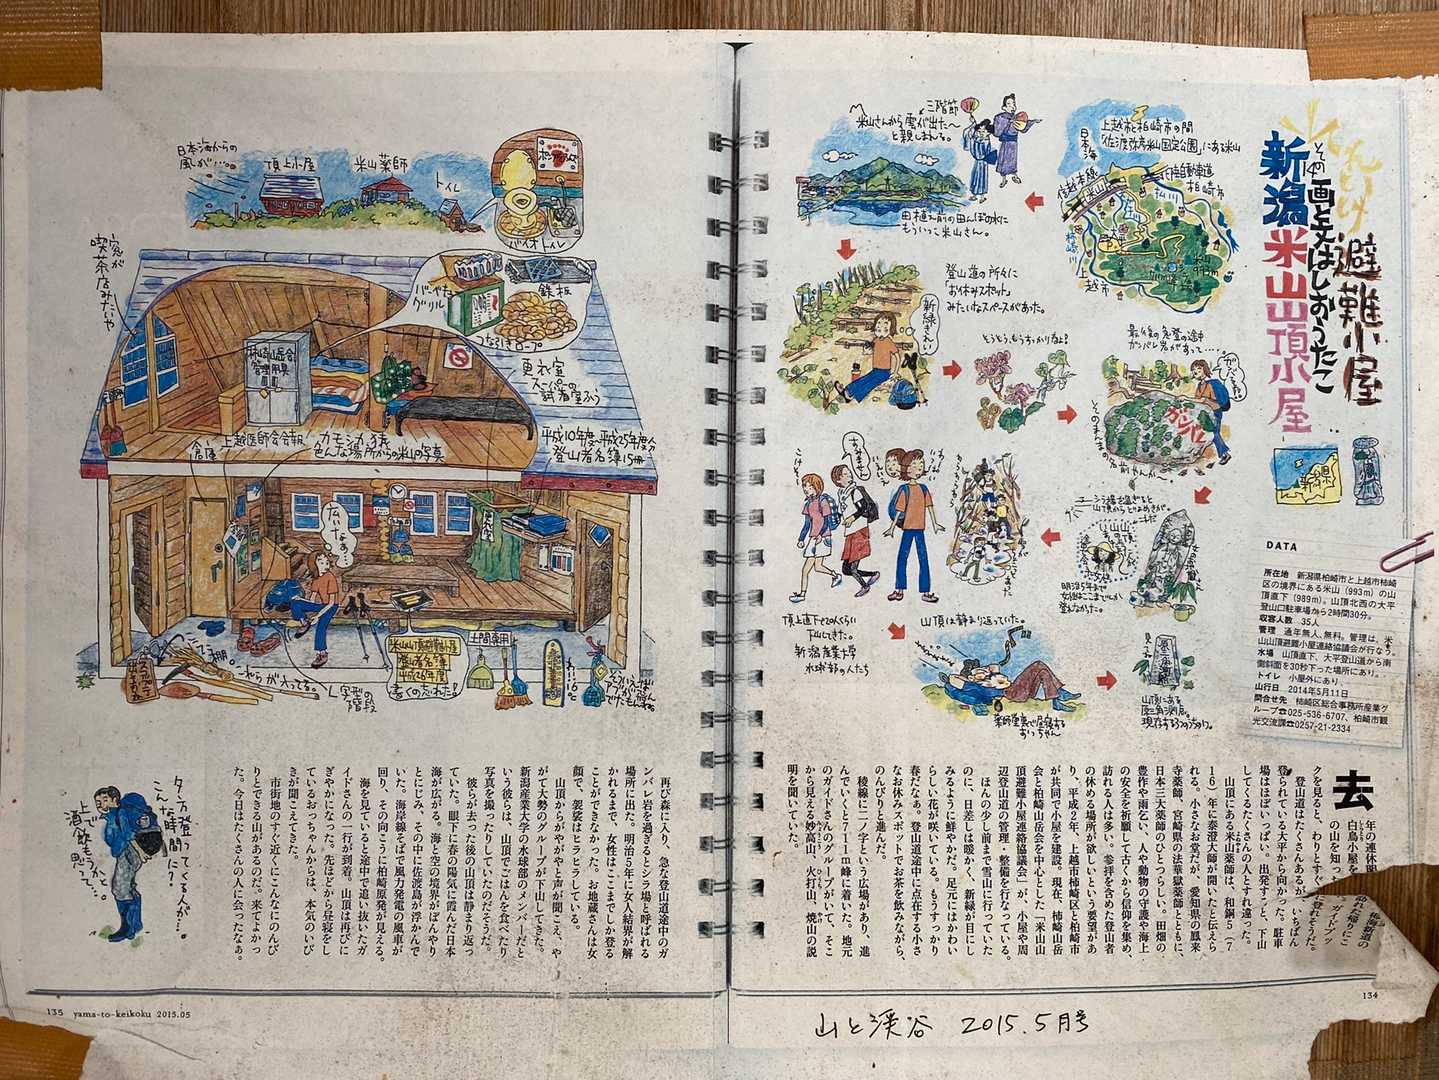 てんいけ 避難小屋
その14 画と文 はしおかうたこ
新潟 米山山頂小屋
新潟県
DATA
所在地　新潟県柏崎市と上越市柿崎
区の境界にある米山（993m）の山
頂直下（989m）。山頂北西の大平
登山口駐車場から2時間30分。
収容人数　35人
管理　通年無人、無料。管理は、米
山山頂避難小屋連絡協議会が行なう。
水場　山頂直下、大平登山道から南
側斜面を30秒下った場所にあり。
トイレ　小屋外にあり。
山行日　2014年5月11日
問合せ先　柿崎区総合事務所産業グ
ループ☎025-536-6707、柏崎市観
光交流課☎0257-21-2334
上越市と柏崎市の間
「佐渡弥彦米山国定公園」にある米山
日本海
信越本線
米山
北陸自動車道
柏崎市
上越市
米山
993m
三階節
米山さんから雲が出た〜
と親しまれる。
田植え前の田んぼの水に
もういっこ米山さん。
登山道の所々に
「お休みスポット」
みたいなスペースがあった。
新緑きれい
最後の急登の途中
ガンバレ岩があって‥‥
ガンバレ
そのまんま。名前やんか〜。
明治5年まで
女性はここまでしか
登れなかった。
すみません
頂上直下で20人くらい
下山してきた。
新潟産業大学
水球部の人たち
山頂は静まり返っていた。
薬師堂裏で昼寝する
おっちゃん
山頂にある
原三角測点。
現存する3つのうちの1つ。
日本海からの
風が‥‥。
頂上小屋
米山薬師
トイレ
バイオトイレ
窓が
喫茶店みたいや
バーベキュー
グリル
鉄板
つな引きロープ
柿崎山岳会
管理用具
更衣室
スーパーの
試着室ふう
倉庫
上越医師会会報
カモシカ、猿
色んな場所からの米山の写真
平成10年度〜平成25年度分
登山者名簿15冊
広いなぁ…
更衣室
米山山頂避難小屋
登山者名簿
平成26年度
書くの忘れた!
土間専用
L字型の
階段
これらが入ってる。
夕方登ってくる人が…。
こんな時間に?
上で
酒飲もうかと
思って…。
去
年の連休間
白鳥小屋を
山の知った
クを見ると、わりとすぐ
登山道はたくさんあるが、いちばん
登られている大平から向かった。駐車
場はほぼいっぱい。出発すると、下山
してくるたくさんの人とすれ違った。
山頂にある米山薬師は、和銅5（7
1 6）年に泰澄大師が開いたと伝えら
れる。小さなお堂だが、愛知県の鳳来
寺薬師、宮崎県の法華嶽薬師とともに、
日本三大薬師のひとつらしい。田畑の
豊作や雨乞い、人や動物の守護や海上
の安全を祈願して古くから信仰を集め、
訪れる人は多い。参拝を含めた登山者
の休める場所が欲しいという要望があ
り、平成2年、上越市柿崎区と柏崎市
が共同で小屋を建設。現在、柿崎山岳
会と柏崎山岳会を中心とした「米山山
頂避難小屋連絡協議会」が、小屋や周
辺登山道の管理・整備を行なっている。
ほんの少し前まで雪山に行っていた
のに、日差しは暖かく、新緑が目にし
みるように鮮やかだ。足元にはかわい
らしい花が咲いている。もうすっかり
春だなぁ。登山道途中に点在する小さ
なお休みスポットでお茶を飲みながら、
のんびりと進んだ。
稜線に二ノ字という広場があり、進
んでいくと711m峰に着いた。地元
のガイドさんのグループがいて、そこ
から見える妙高山、火打山、焼山の説
明を聞いていた。
再び森に入り、急な登山道途中のガ
ンバレ岩を過ぎるとシラ場と呼ばれる
場所に出た。明治5年に女人結界が解
かれるまで、女性はここまでしか登る
ことができなかった。お地蔵さんは女
顔で、袈裟はヒラヒラしている。
山頂からがやがやと声が聞こえ、や
がて大勢のグループが下山してきた。
新潟産業大学の水球部のメンバーだと
いう彼らは、山頂でごはんを食べたり
写真を撮ったりしていたのだそうだ。
彼らが去った後の山頂は静まり返っ
ていた。眼下に春の陽気に霞んだ日本
海が広がる。海と空の境界がぼんやり
とにじみ、その中に佐渡島が浮かんで
いた。海岸線そばで風力発電の風車が
回り、その向こうに柏崎原発が見える。
海を見ていると途中で追い抜いたガ
イドさんの一行が到着。山頂は再びに
ぎやかになった。先ほどから昼寝をし
ているおっちゃんからは、本気のいび
きが聞こえてきた。
市街地のすぐ近くにこんなにのんび
りとできる山があるのだ。来てよかっ
た。今日はたくさんの人に会ったなぁ。
134
135 yama-to-keikoku 2015.05
山と渓谷　2015.5月号